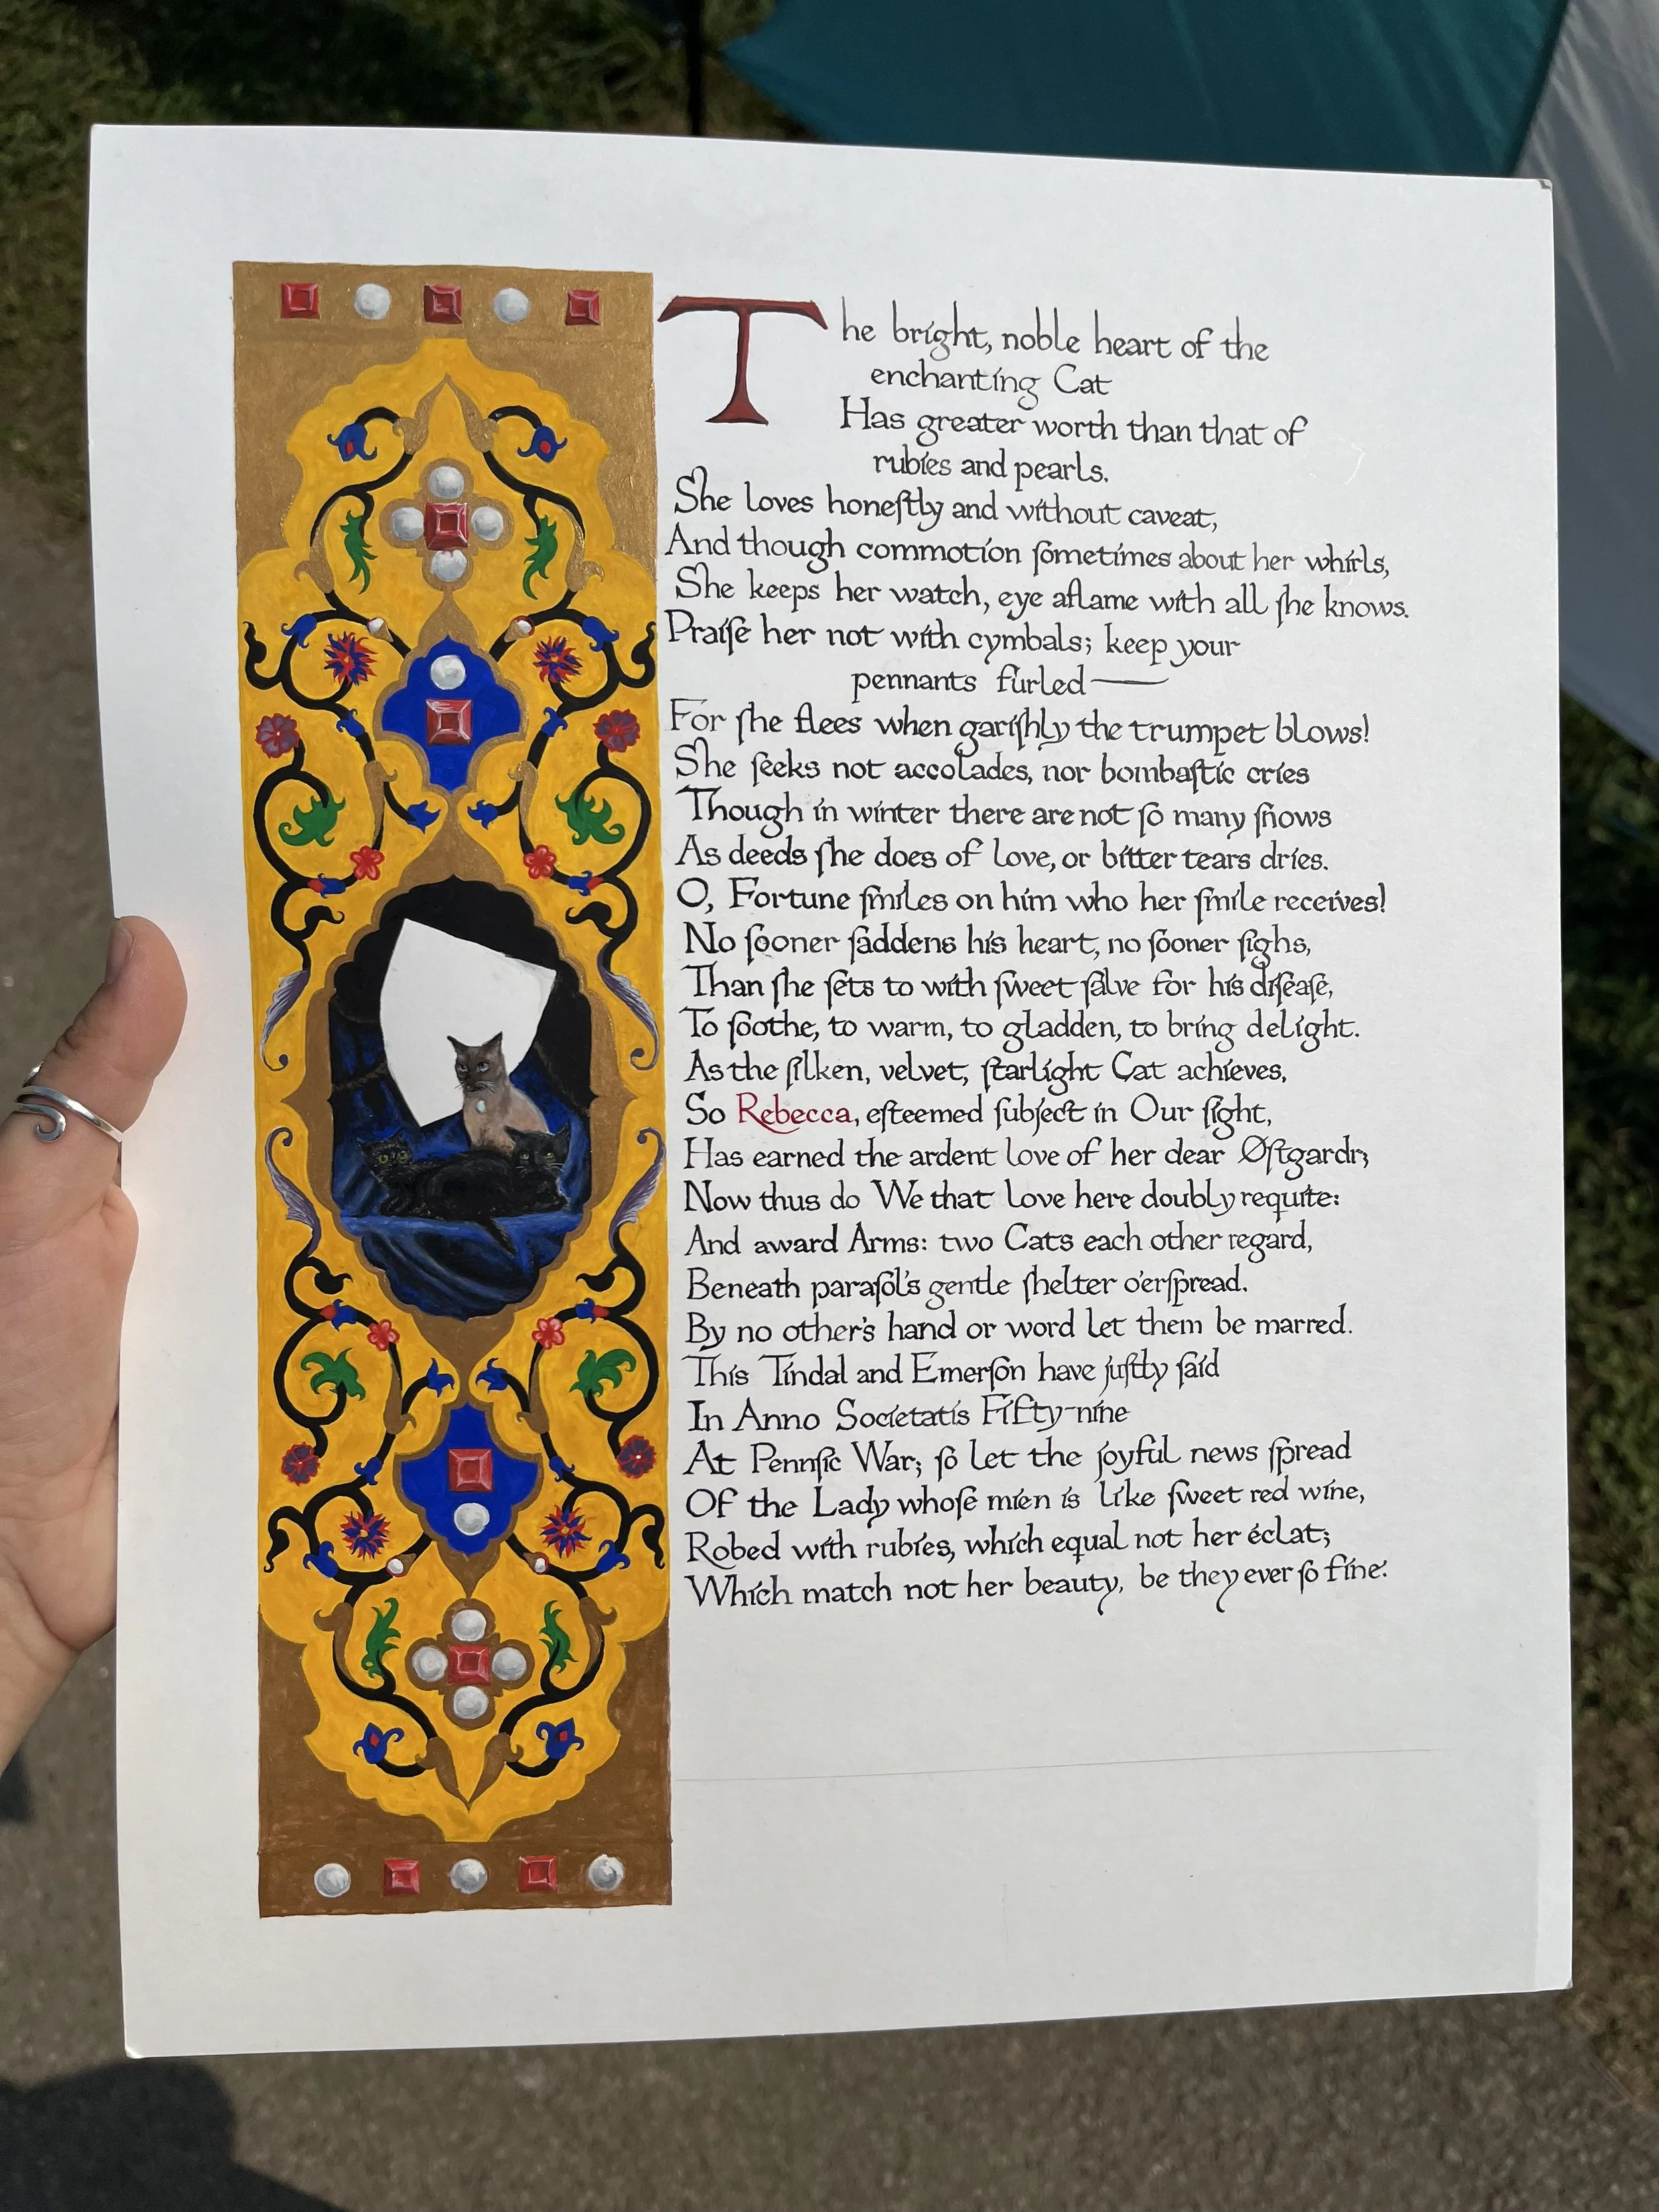 The bright, noble heart of the
enchanting Cat
Has greater worth than that of
rubies and pearls.
She loves honeſtly and without caveat,
And though commotion ſometimes about her whirls,
She keeps her watch, eye aflame with all ſhe knows.
Praiſe her not with cymbals; keep your
pennants furled—
For ſhe flees when gariſhly the trumpet blows!
She ſeeks not accolades, nor bombaſtic cries
Though in winter there are not ſo many ſnows
As deeds ſhe does of love, or bitter tears dries.
O, Fortune ſmiles on him who her ſmile receives!
No ſooner ſaddens his heart, no ſooner ſighs,
Than ſhe ſets to with ſweet ſalve for his diſeaſe,
To ſoothe, to warm, to gladden, to bring delight.
As the ſilken, velvet, ſtarlight Cat achieves,
So Rebecca, eſteemed ſubject in Our ſight,
Has earned the ardent love of her dear Øſtgardr;
Now thus do We that love here doubly requite:
And award Arms: two Cats each other regard,
Beneath paraſol's gentle ſhelter o'erſpread.
By no other's hand or word let them be marred.
This Tindal and Emerſon have juſtly ſaid
In Anno Societatis Fifty-nine
At Pennſic War; ſo let the joyful news ſpread
Of the Lady whoſe mien is like ſweet red wine,
Robed with rubies, which equal not her éclat;
Which match not her beauty, be they ever ſo fine.